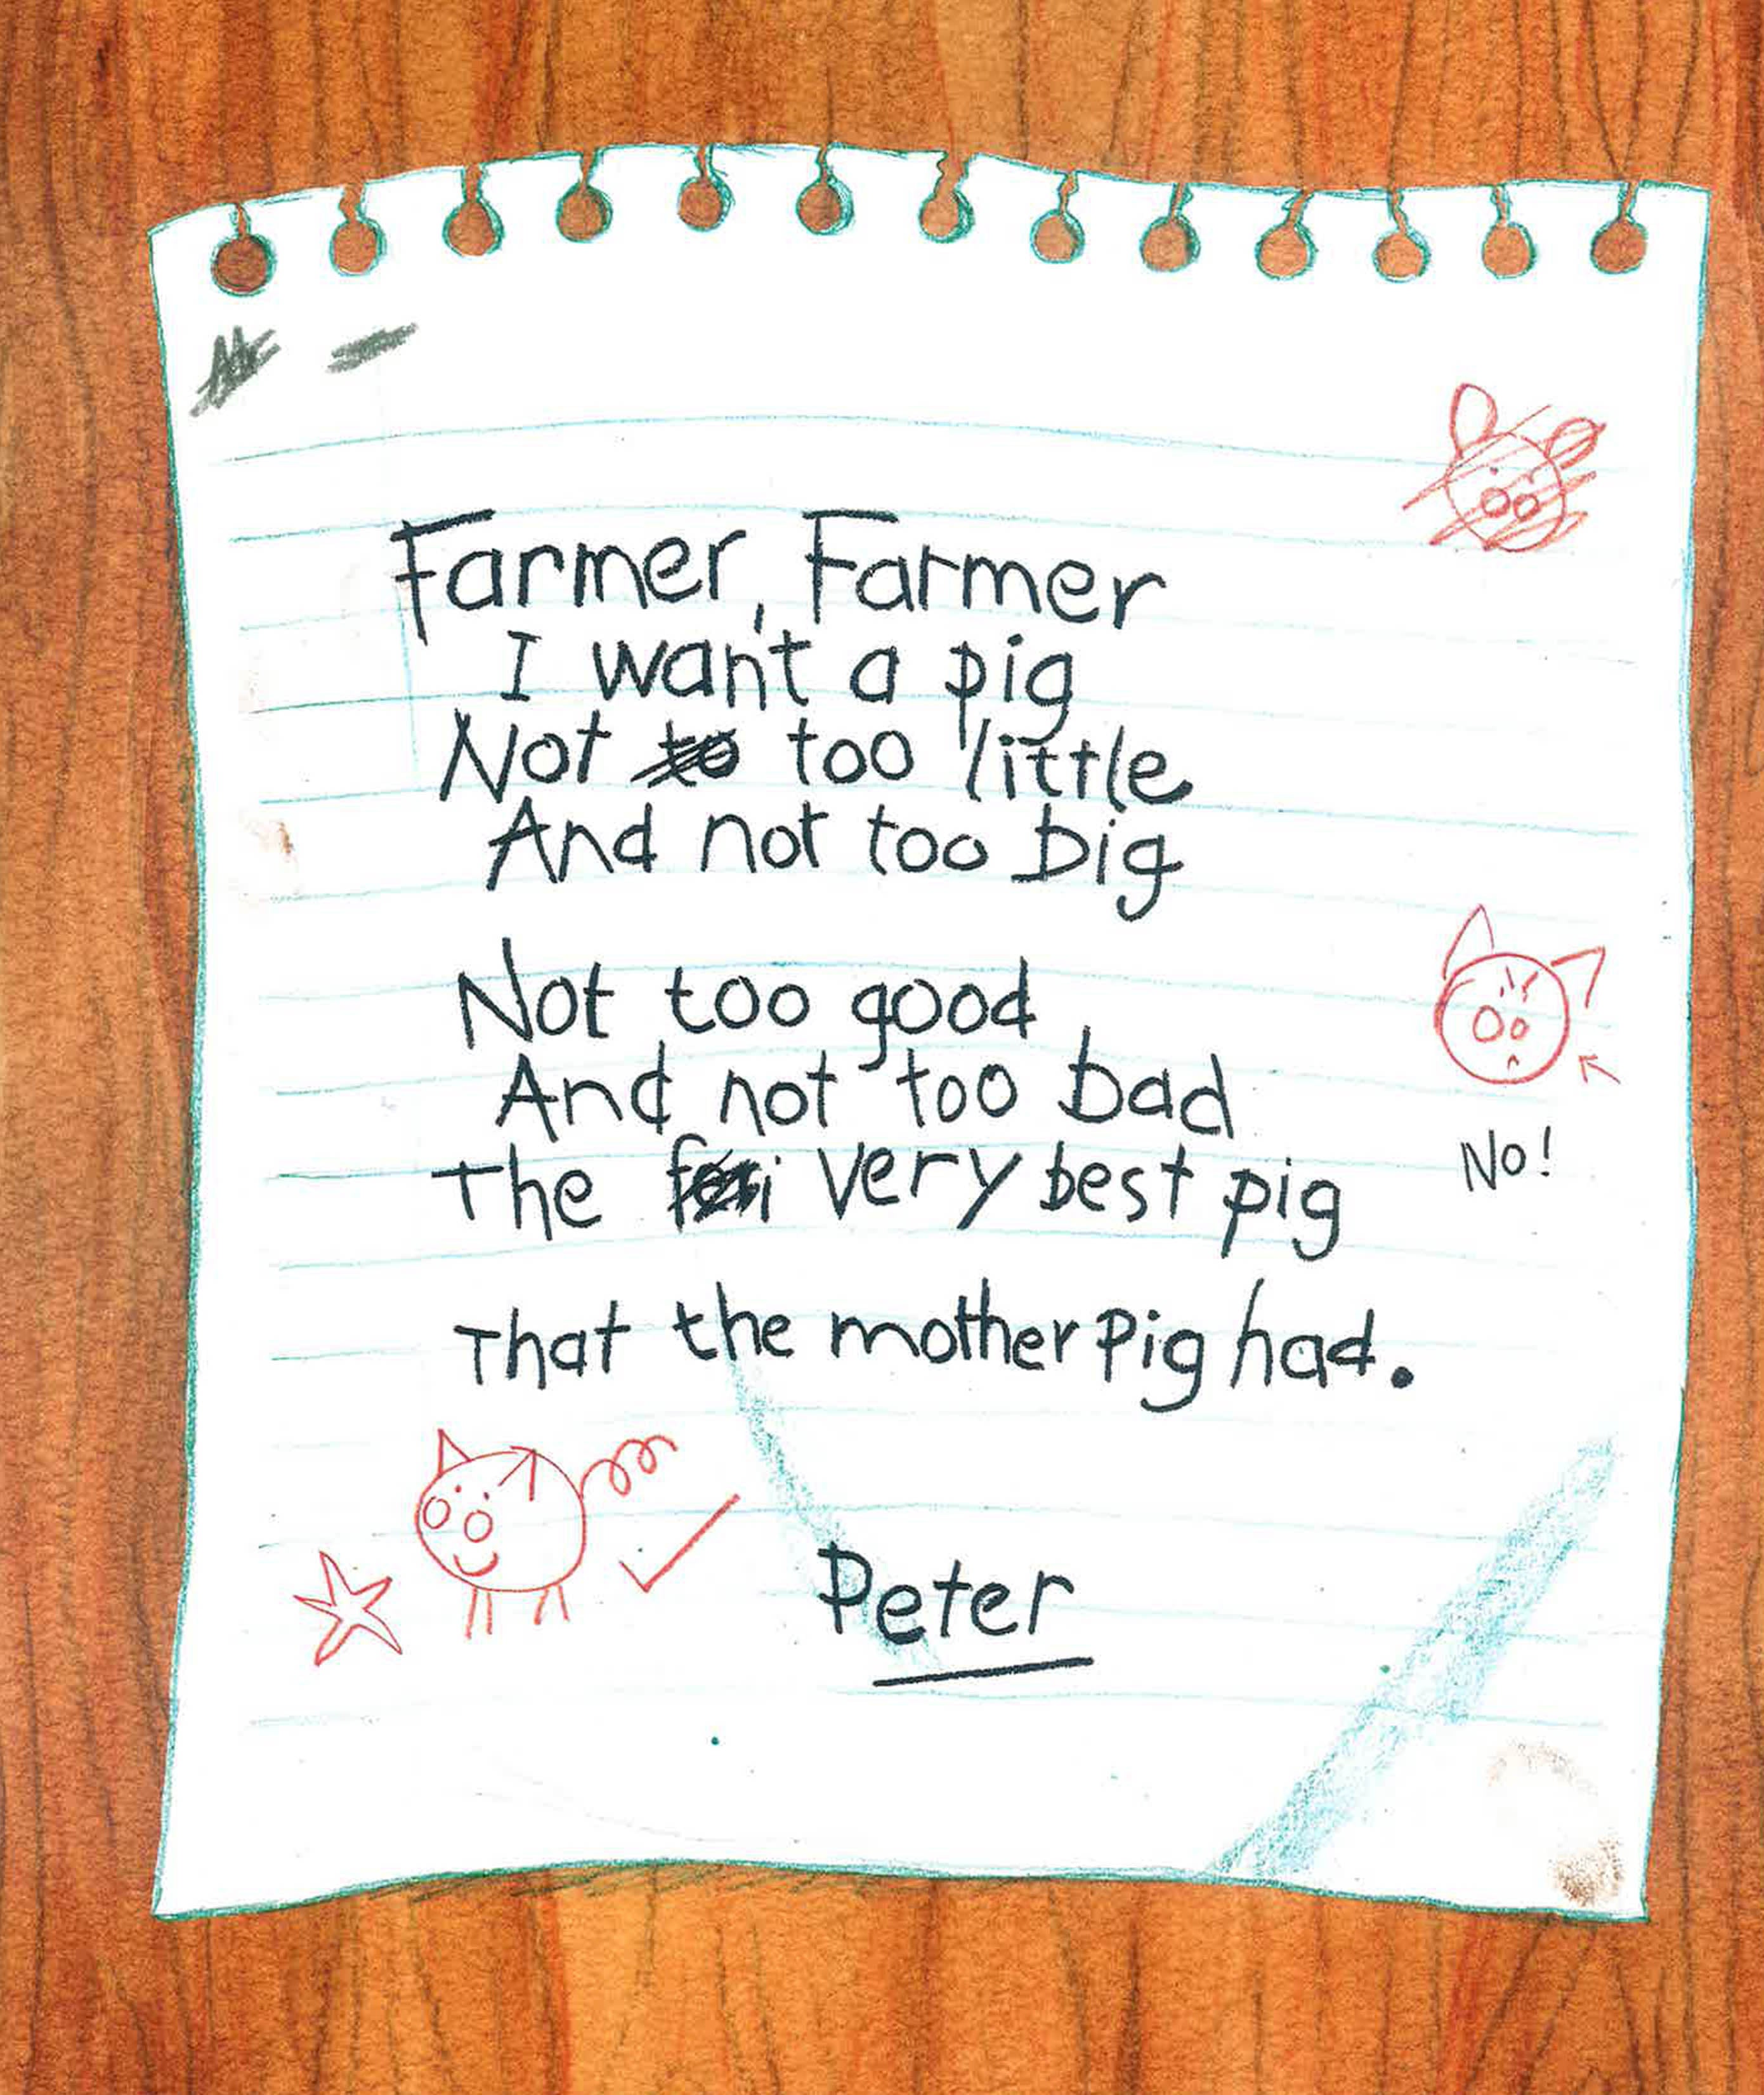 Farmer, Farmer
I want a pig
Not to too little
And not too big
Not too good
And not too bad
The very best pig
No!
That the mother pig had.
Peter